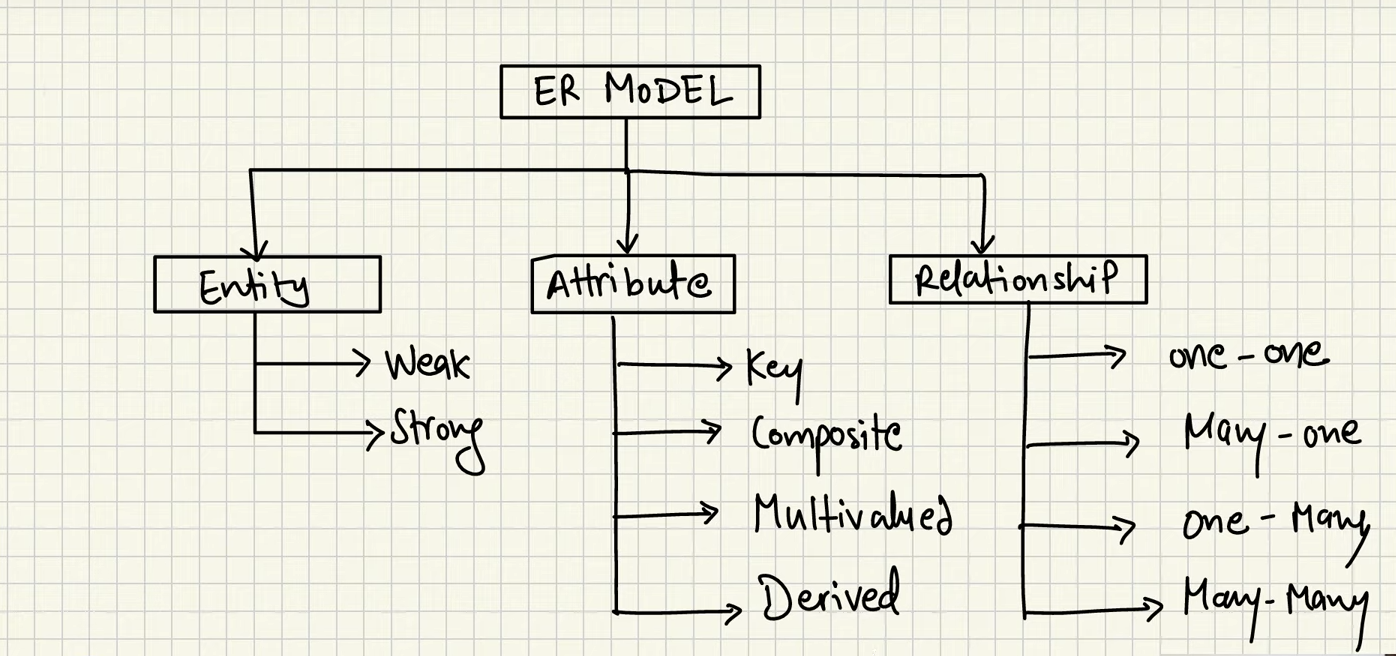 ER MODEL
Entity
Weak
Strong
Attribute
Key
Composite
Multivalued
Derived
Relationship
one-one
Many-one
one-Many
Many-Many